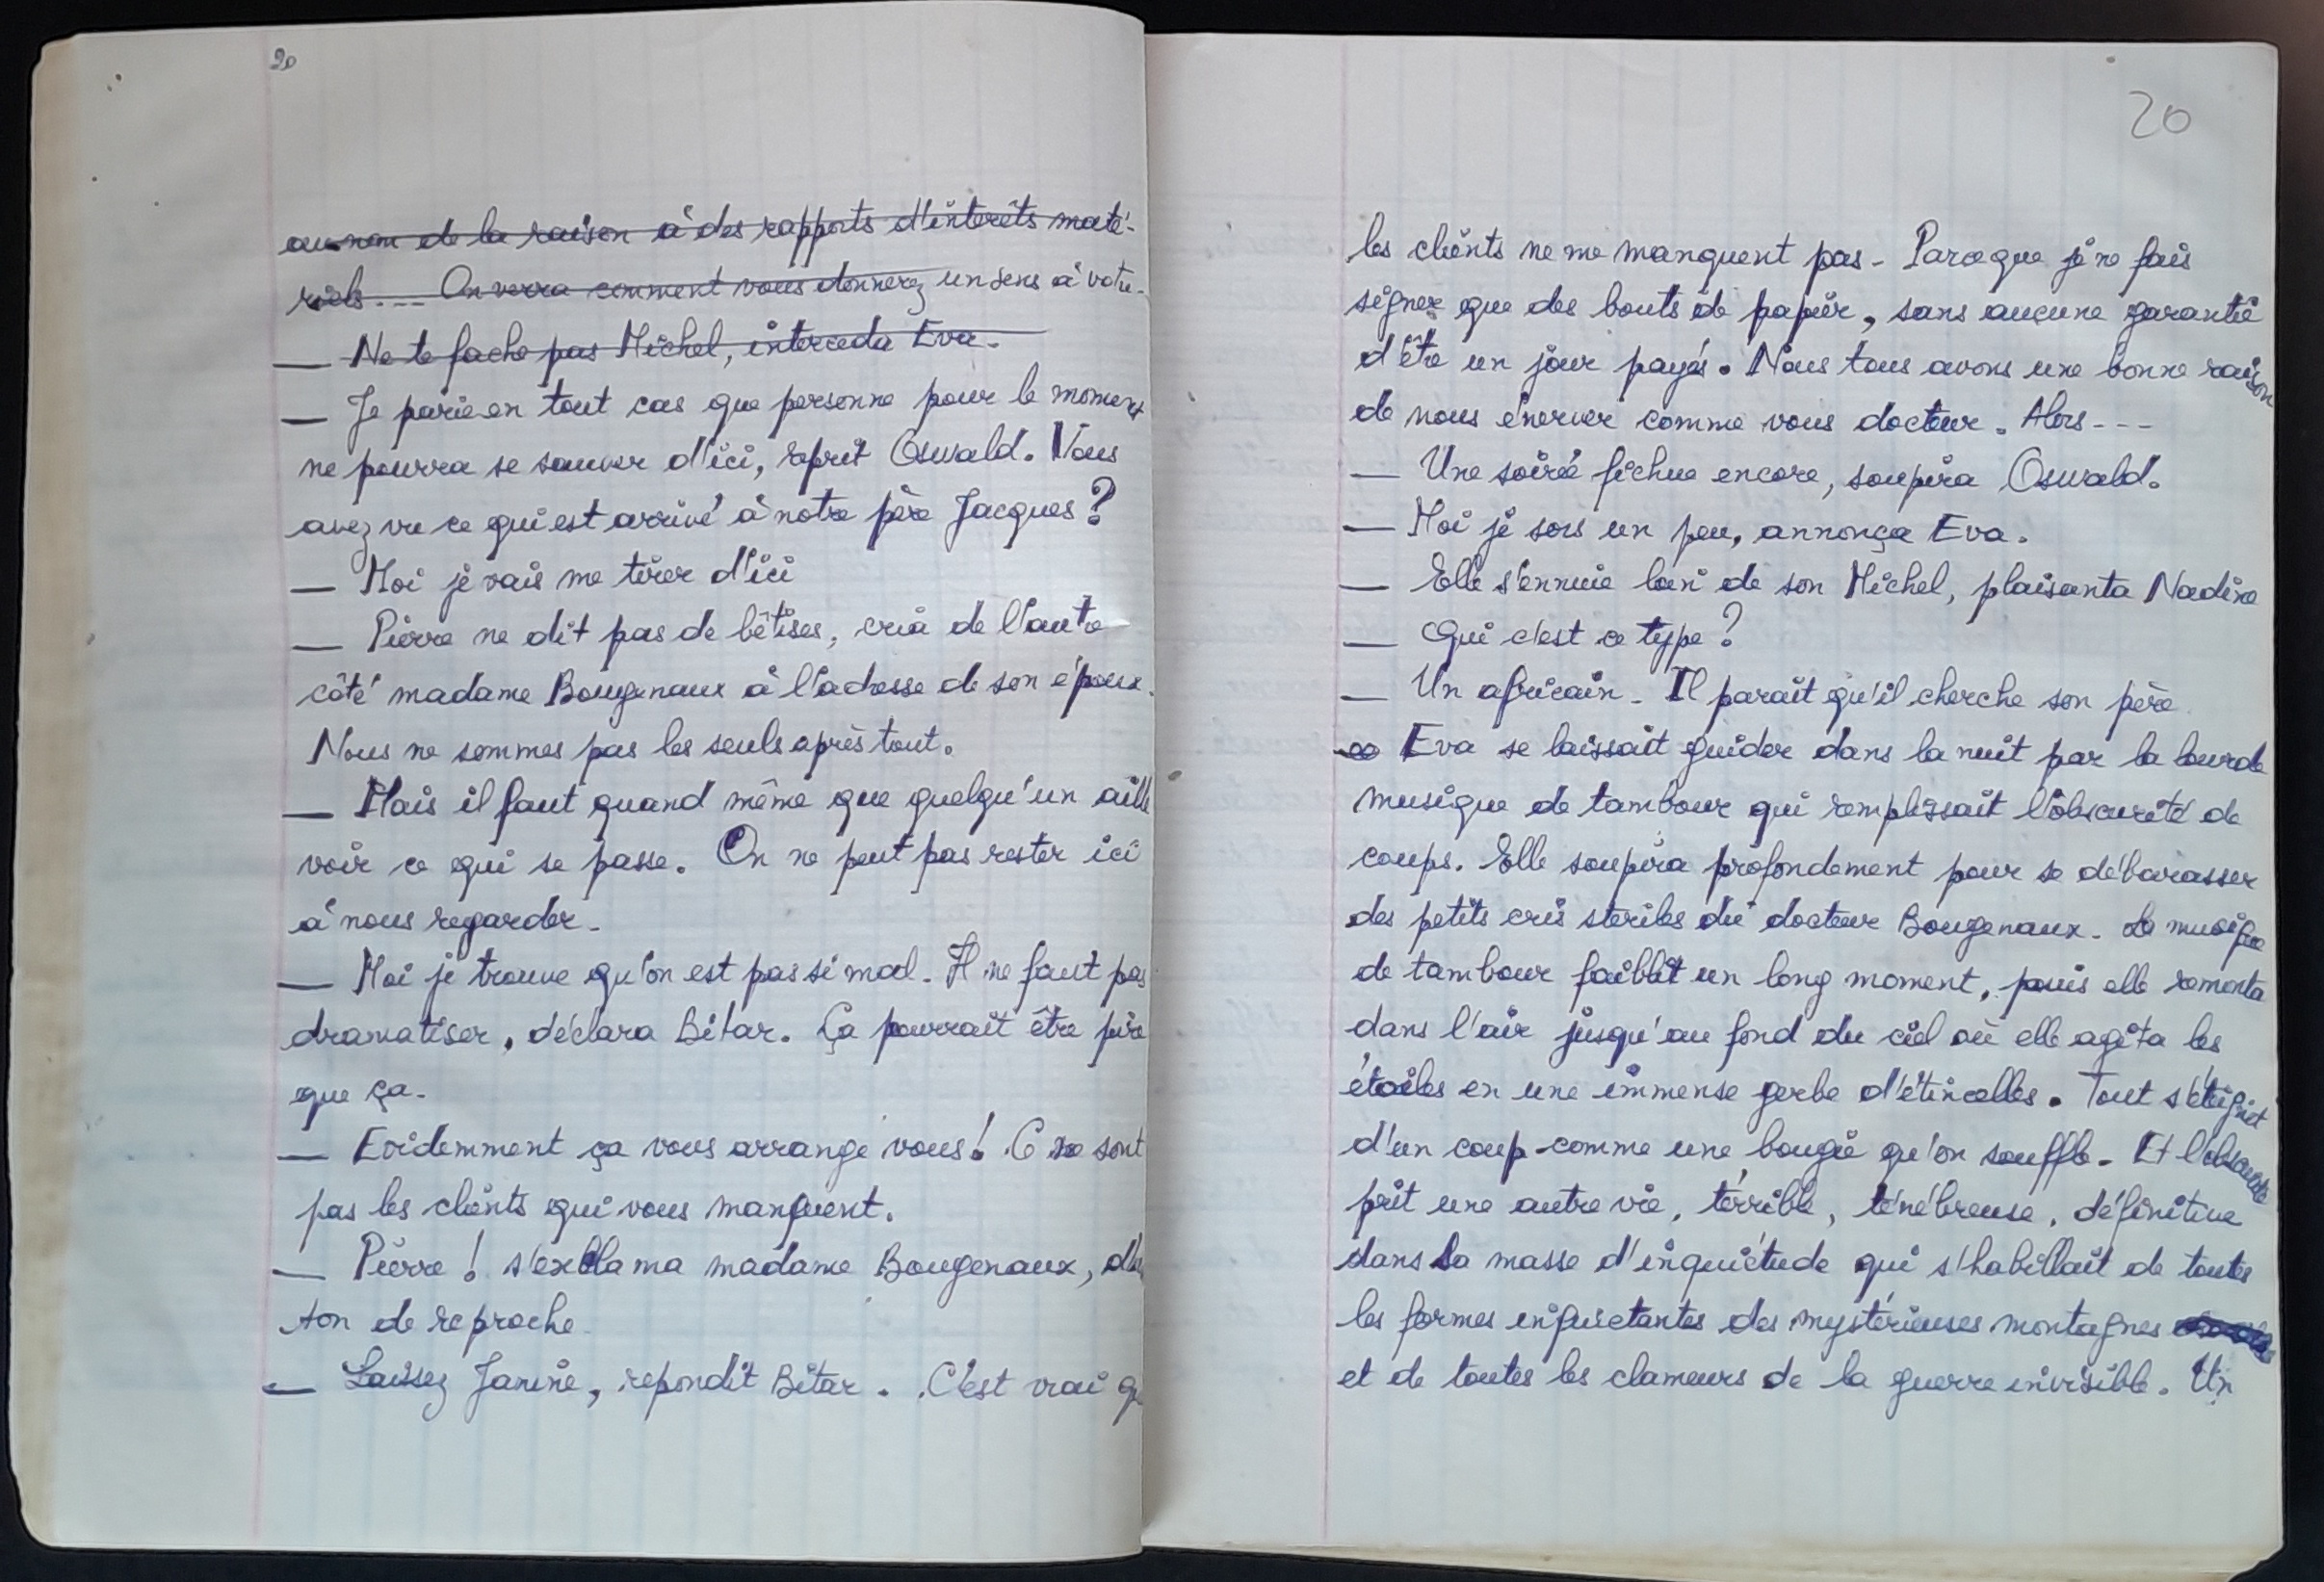 20
au nom de la raison à des rapports d'intérêts maté-
riels... On verra comment vous donnerez un sens à votre-
— Ne te fache pas Michel, interceda Eva.
— Je parie en tout cas que personne pour le moment
ne pourra se sauver d'ici, reprit Oswald. Vous
avez vu ce qui est arrivé à notre père Jacques ?
— Moi je vais me tirer d'ici
— Pierre ne dit pas de bêtises, cria de l'autre
côté madame Bougenaux à l'adresse de son époux.
Nous ne sommes pas les seuls après tout.
— Mais il faut quand même que quelqu'un aille
voir ce qui se passe. On ne peut pas rester ici
à nous regarder.
— Moi je trouve qu'on est pas si mal. Il ne faut pas
dramatiser, déclara Bitar. Ça pourrait être pire
que ça.
— Evidemment ça vous arrange vous ! Ce ne sont
pas les clients qui vous manquent.
— Pierre ! s'exclama madame Bougenaux, d'un
ton de reproche.
— Laissez Janine, repondit Bitar. C'est vrai
20
les clients ne me manquent pas - Parce que je ne fais
signer que des bouts de papier, sans aucune garantie
d'être un jour payés. Nous tous avons une bonne raison
de nous énerver comme vous docteur. Alors ---
— Une soirée fichue encore, soupira Oswald.
— Moi je sors un peu, annonça Eva.
— Elle s'ennuie loin de son Michel, plaisanta Nadine
— Qui c'est ce type ?
— Un africain - Il parait qu'il cherche son père
Eva se laissait guider dans la nuit par la lourde
musique de tambour qui remplissait l'obscurité de
coups. Elle soupira profondement pour se débarasser
des petits cris steriles du docteur Bougenaux. La musique
de tambour faiblit un long moment, puis elle remonta
dans l'air jusqu'au fond du ciel où elle agita les
étoiles en une immense gerbe d'étincelles. Tout s'éteignit
d'un coup comme une bougie qu'on souffle - Et l'obscurité
prit une autre vie, térrible, ténébreuse, définitive
dans la masse d'inquiétude qui s'habillait de toutes
les formes inquietantes des mystérieuses montagnes
et de toutes les clameurs de la guerre invisible. Un